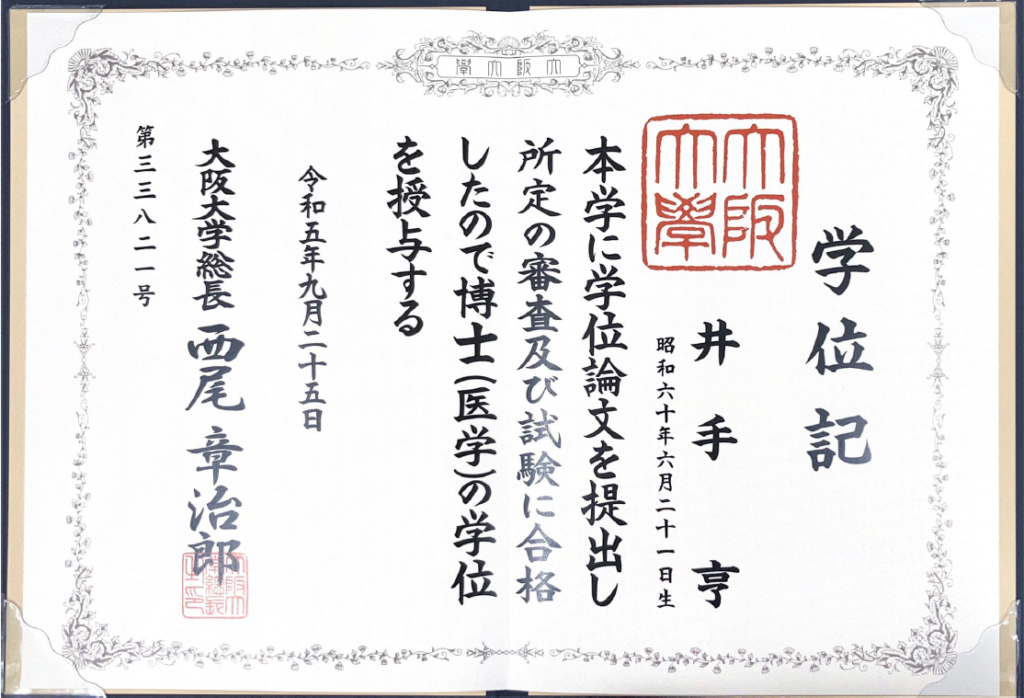 大阪大學
学位記
大阪大學
井手 亨
昭和六十年六月二十一日生
本学に学位論文を提出し
所定の審査及び試験に合格
したので博士(医学)の学位
を授与する
令和五年九月二十五日
大阪大学総長 西尾 章治郎
第三三八二一号